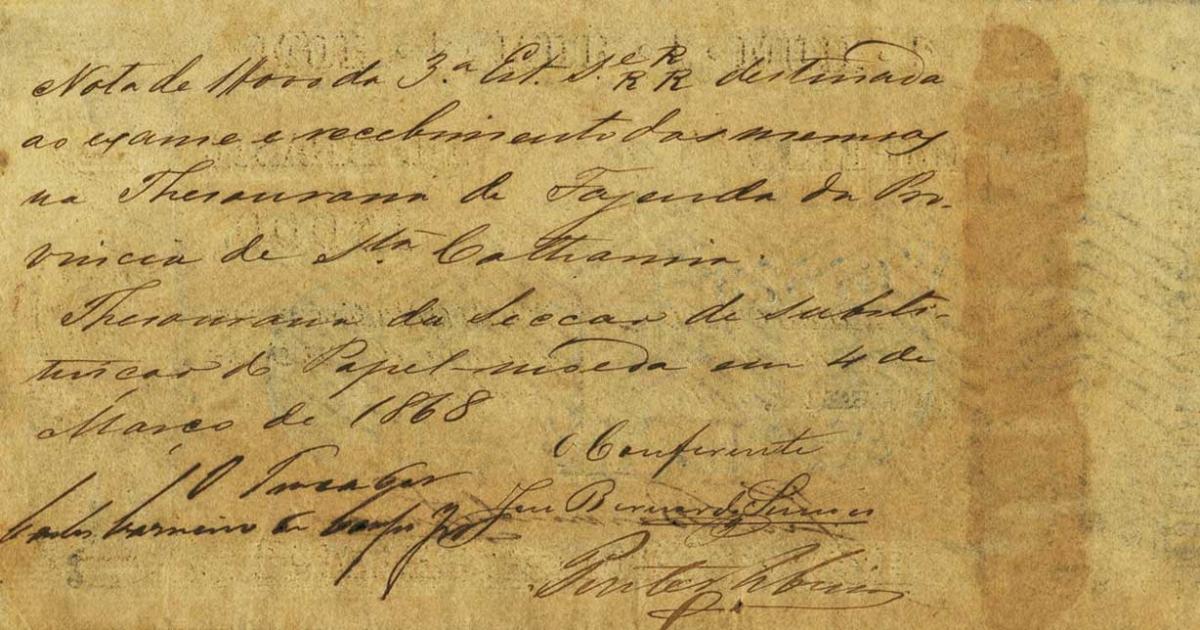 Nota de 1$000 da 3.ª Est. S. e R R R destinada
ao exame e recebimento das mesmas
na Thesouraria de Fazenda da Pro-
vincia de Sta Catharina.
Thesouraria da Seccao de substi-
tuiçao do Papel-moeda em 4 de
Março de 1868
O Conferente
O
Carlos Carneiro de Campos
José Bernardes